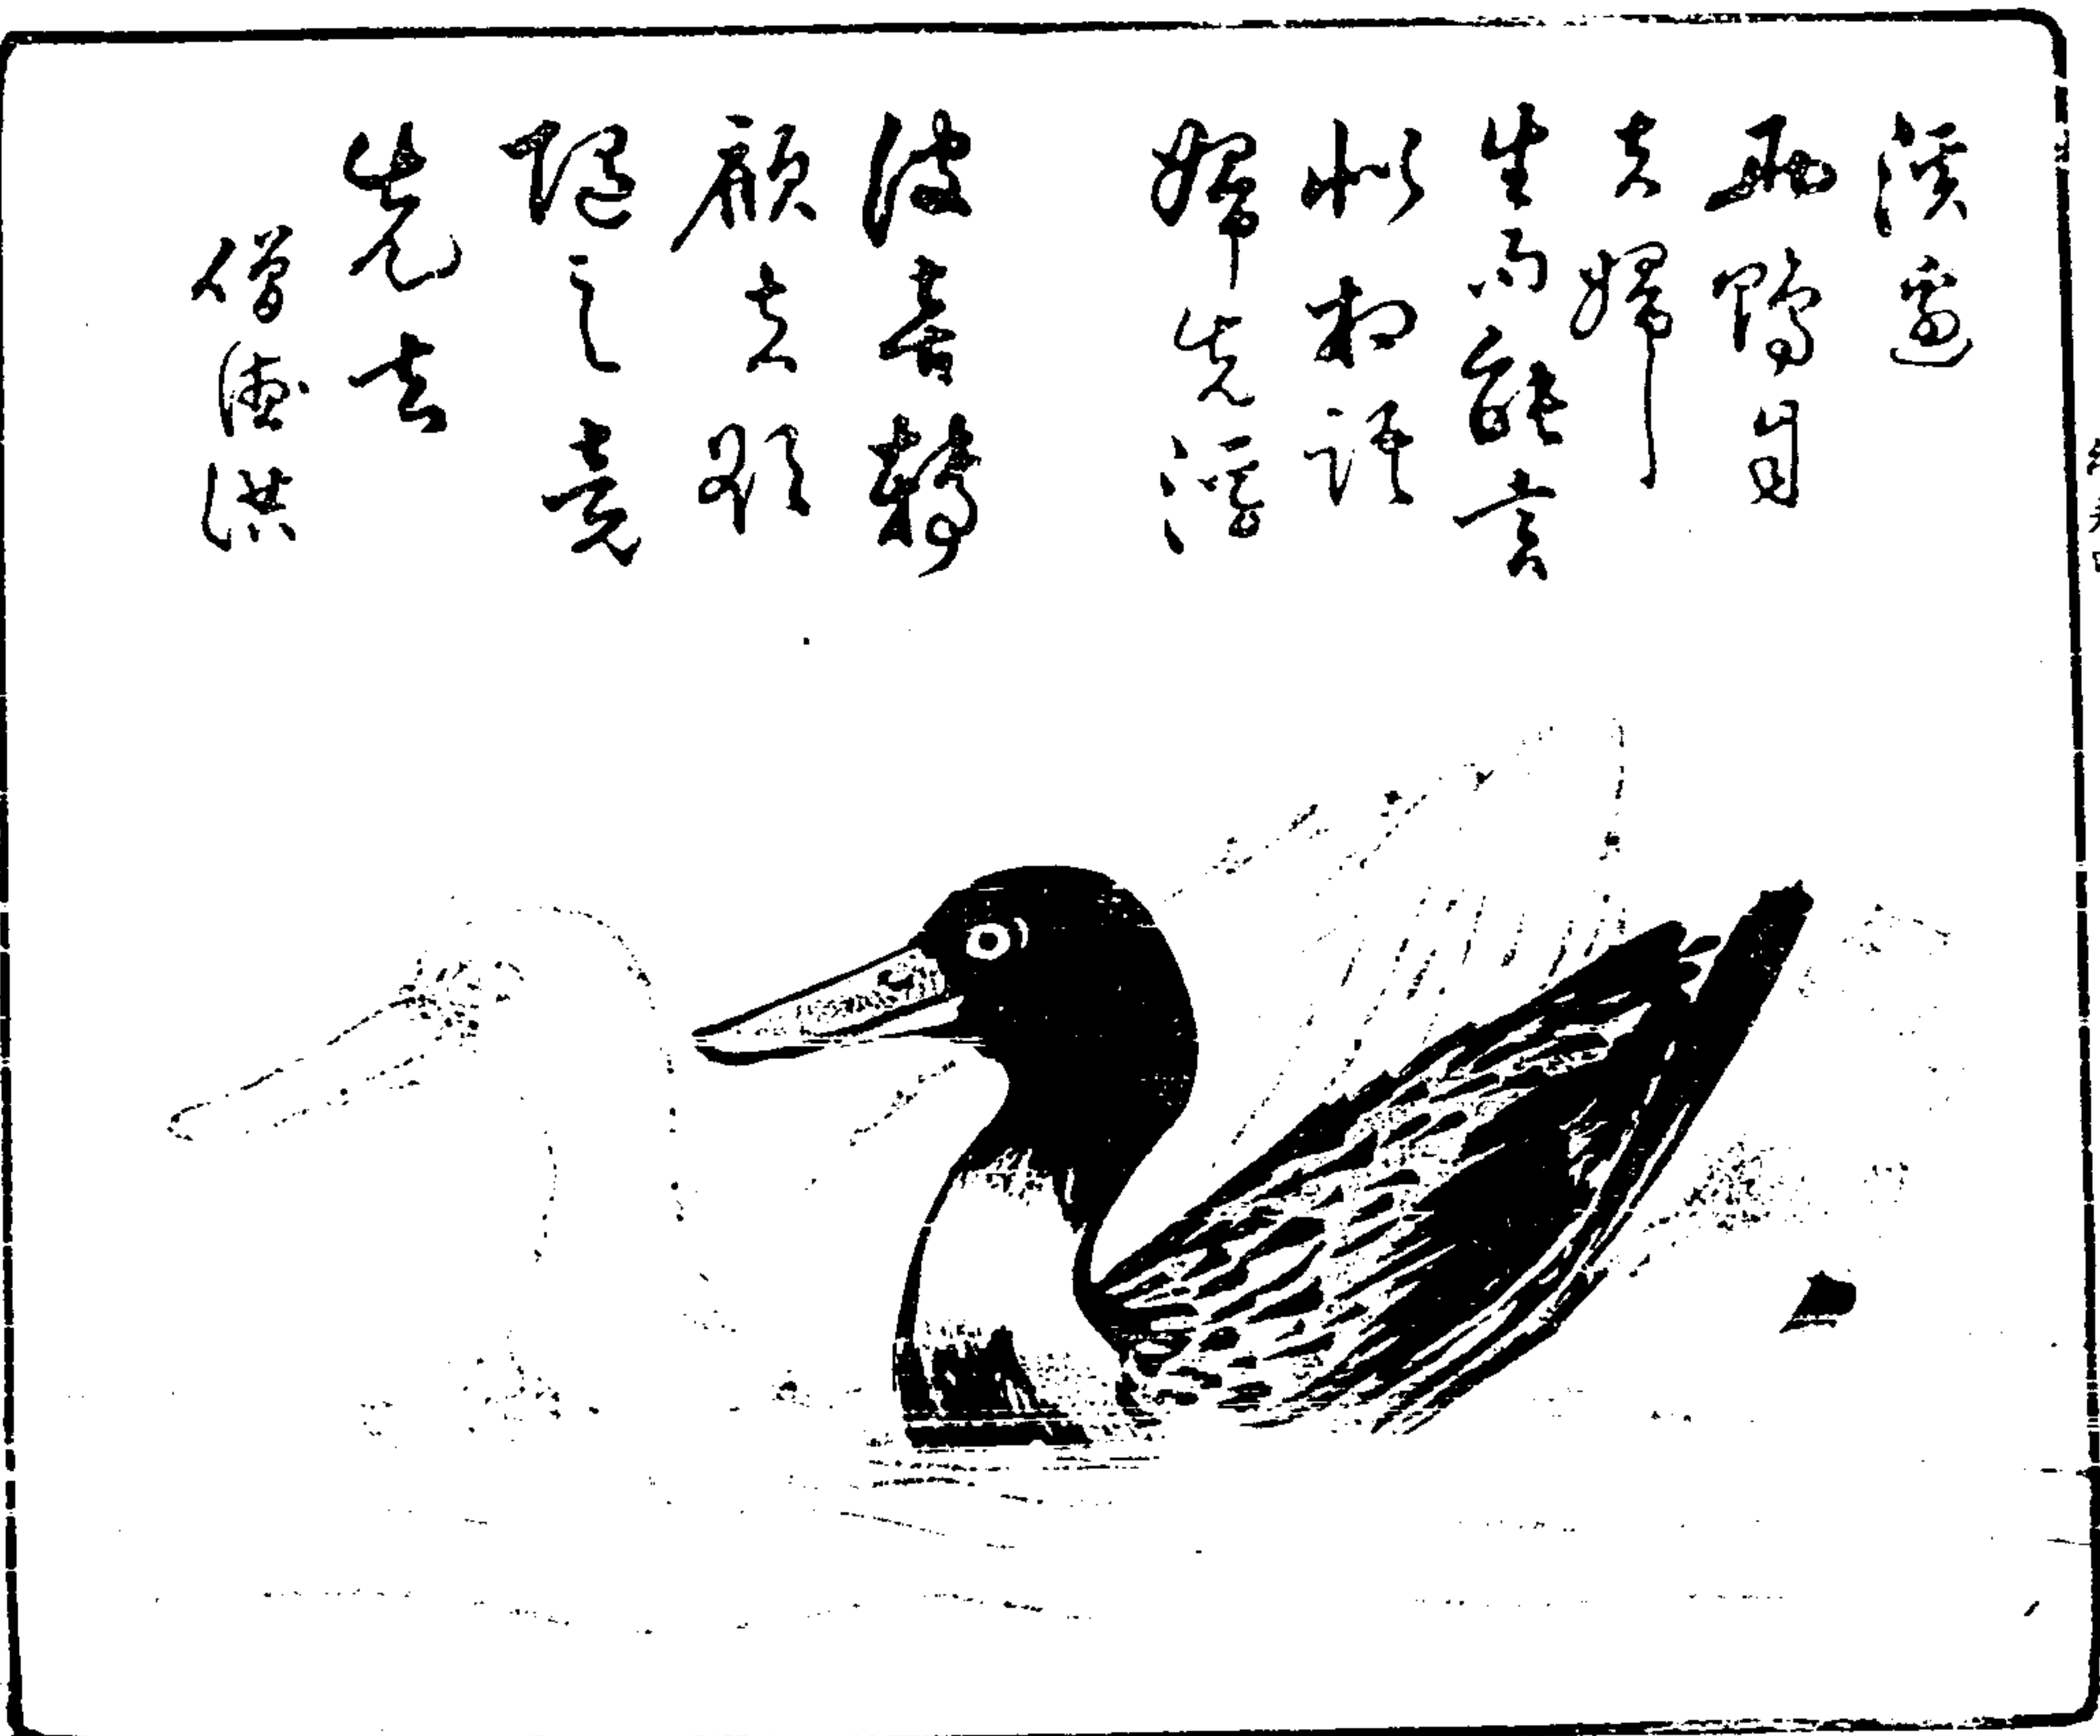 溪邊
兩鴨自
夫婦
生不能言
似相語
婦先浮
波轉
顧夫欲
隨之竟
先去
僧德洪